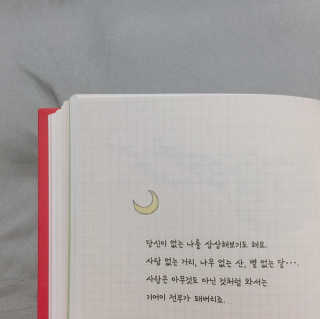 당신이 없는 나를 상상해보기도 해요.
사람 없는 거리, 나무 없는 산, 별 없는 달···.
사랑은 아무것도 아닌 것처럼 와서는
기어이 전부가 돼버리죠.